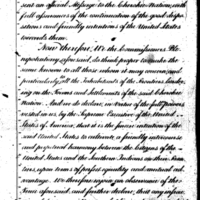 sent an official Message to the Cherokee Nation, with
full assurances of the continuation of the good dispo-
sitions and friendly intentions of the United States
towards them.
Now therefore, We the Commissioners Ple-
nipotentiary aforesaid, do think proper to make the
same known to all those whom it may concern, and
particularly to all the Inhabitants of the Frontiers border-
ing on the Towns and Settlements of the said Cherokee
Nation. And we do declare, in virtue of the full powers
vested in us, by the Supreme Executive of the United
States of America, that it is the sincere intention of the
said United States to cultivate a friendly intercourse
and perpetual harmony between the Citizens of the
United States and the Southern Indians on their Fron-
tiers, upon terms of perfect equality and mutual ad-
vantage. We therefore enjoin an observance of the
Truce aforesaid, and further declare, that any infrac-